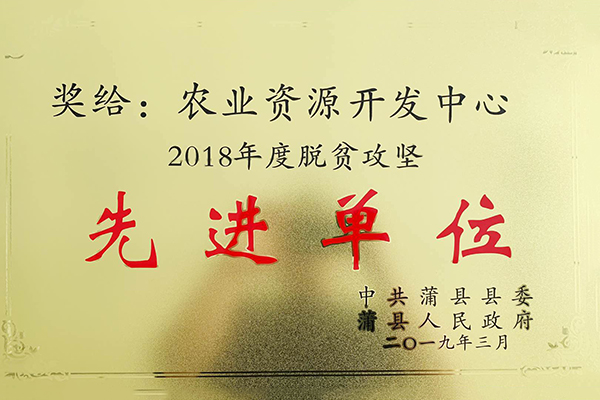 奖给：农业资源开发中心
2018年度脱贫攻坚
先进单位
中共蒲县县委
蒲县人民政府
二〇一九年三月